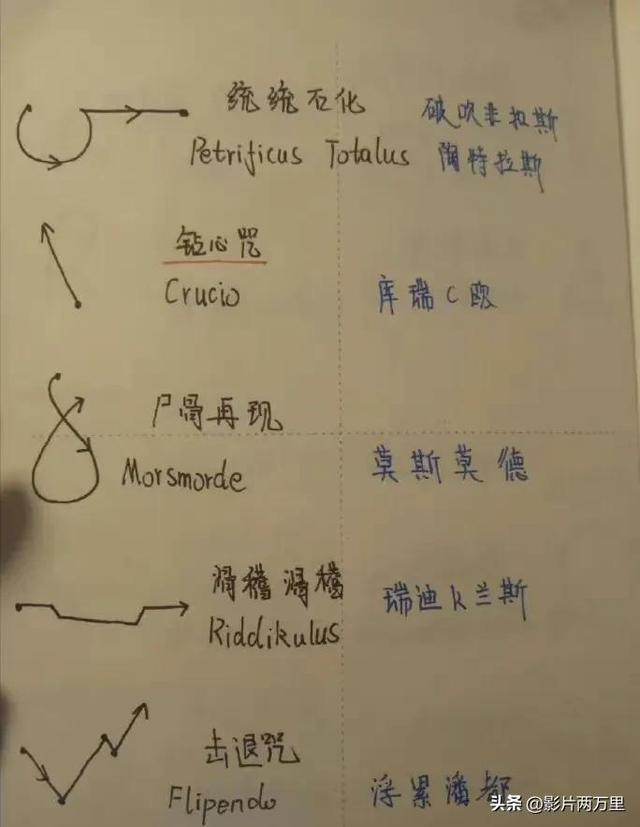 统统石化
破吹非拉斯
Petrificus Totalus
陶特拉斯
钻心咒
Crucio
库瑞C欧
尸骨再现
Morsmorde
莫斯莫德
滑稽滑稽
Riddikulus
瑞迪k兰斯
击退咒
Flipendo
浮累潘都
头条 @影片两万里